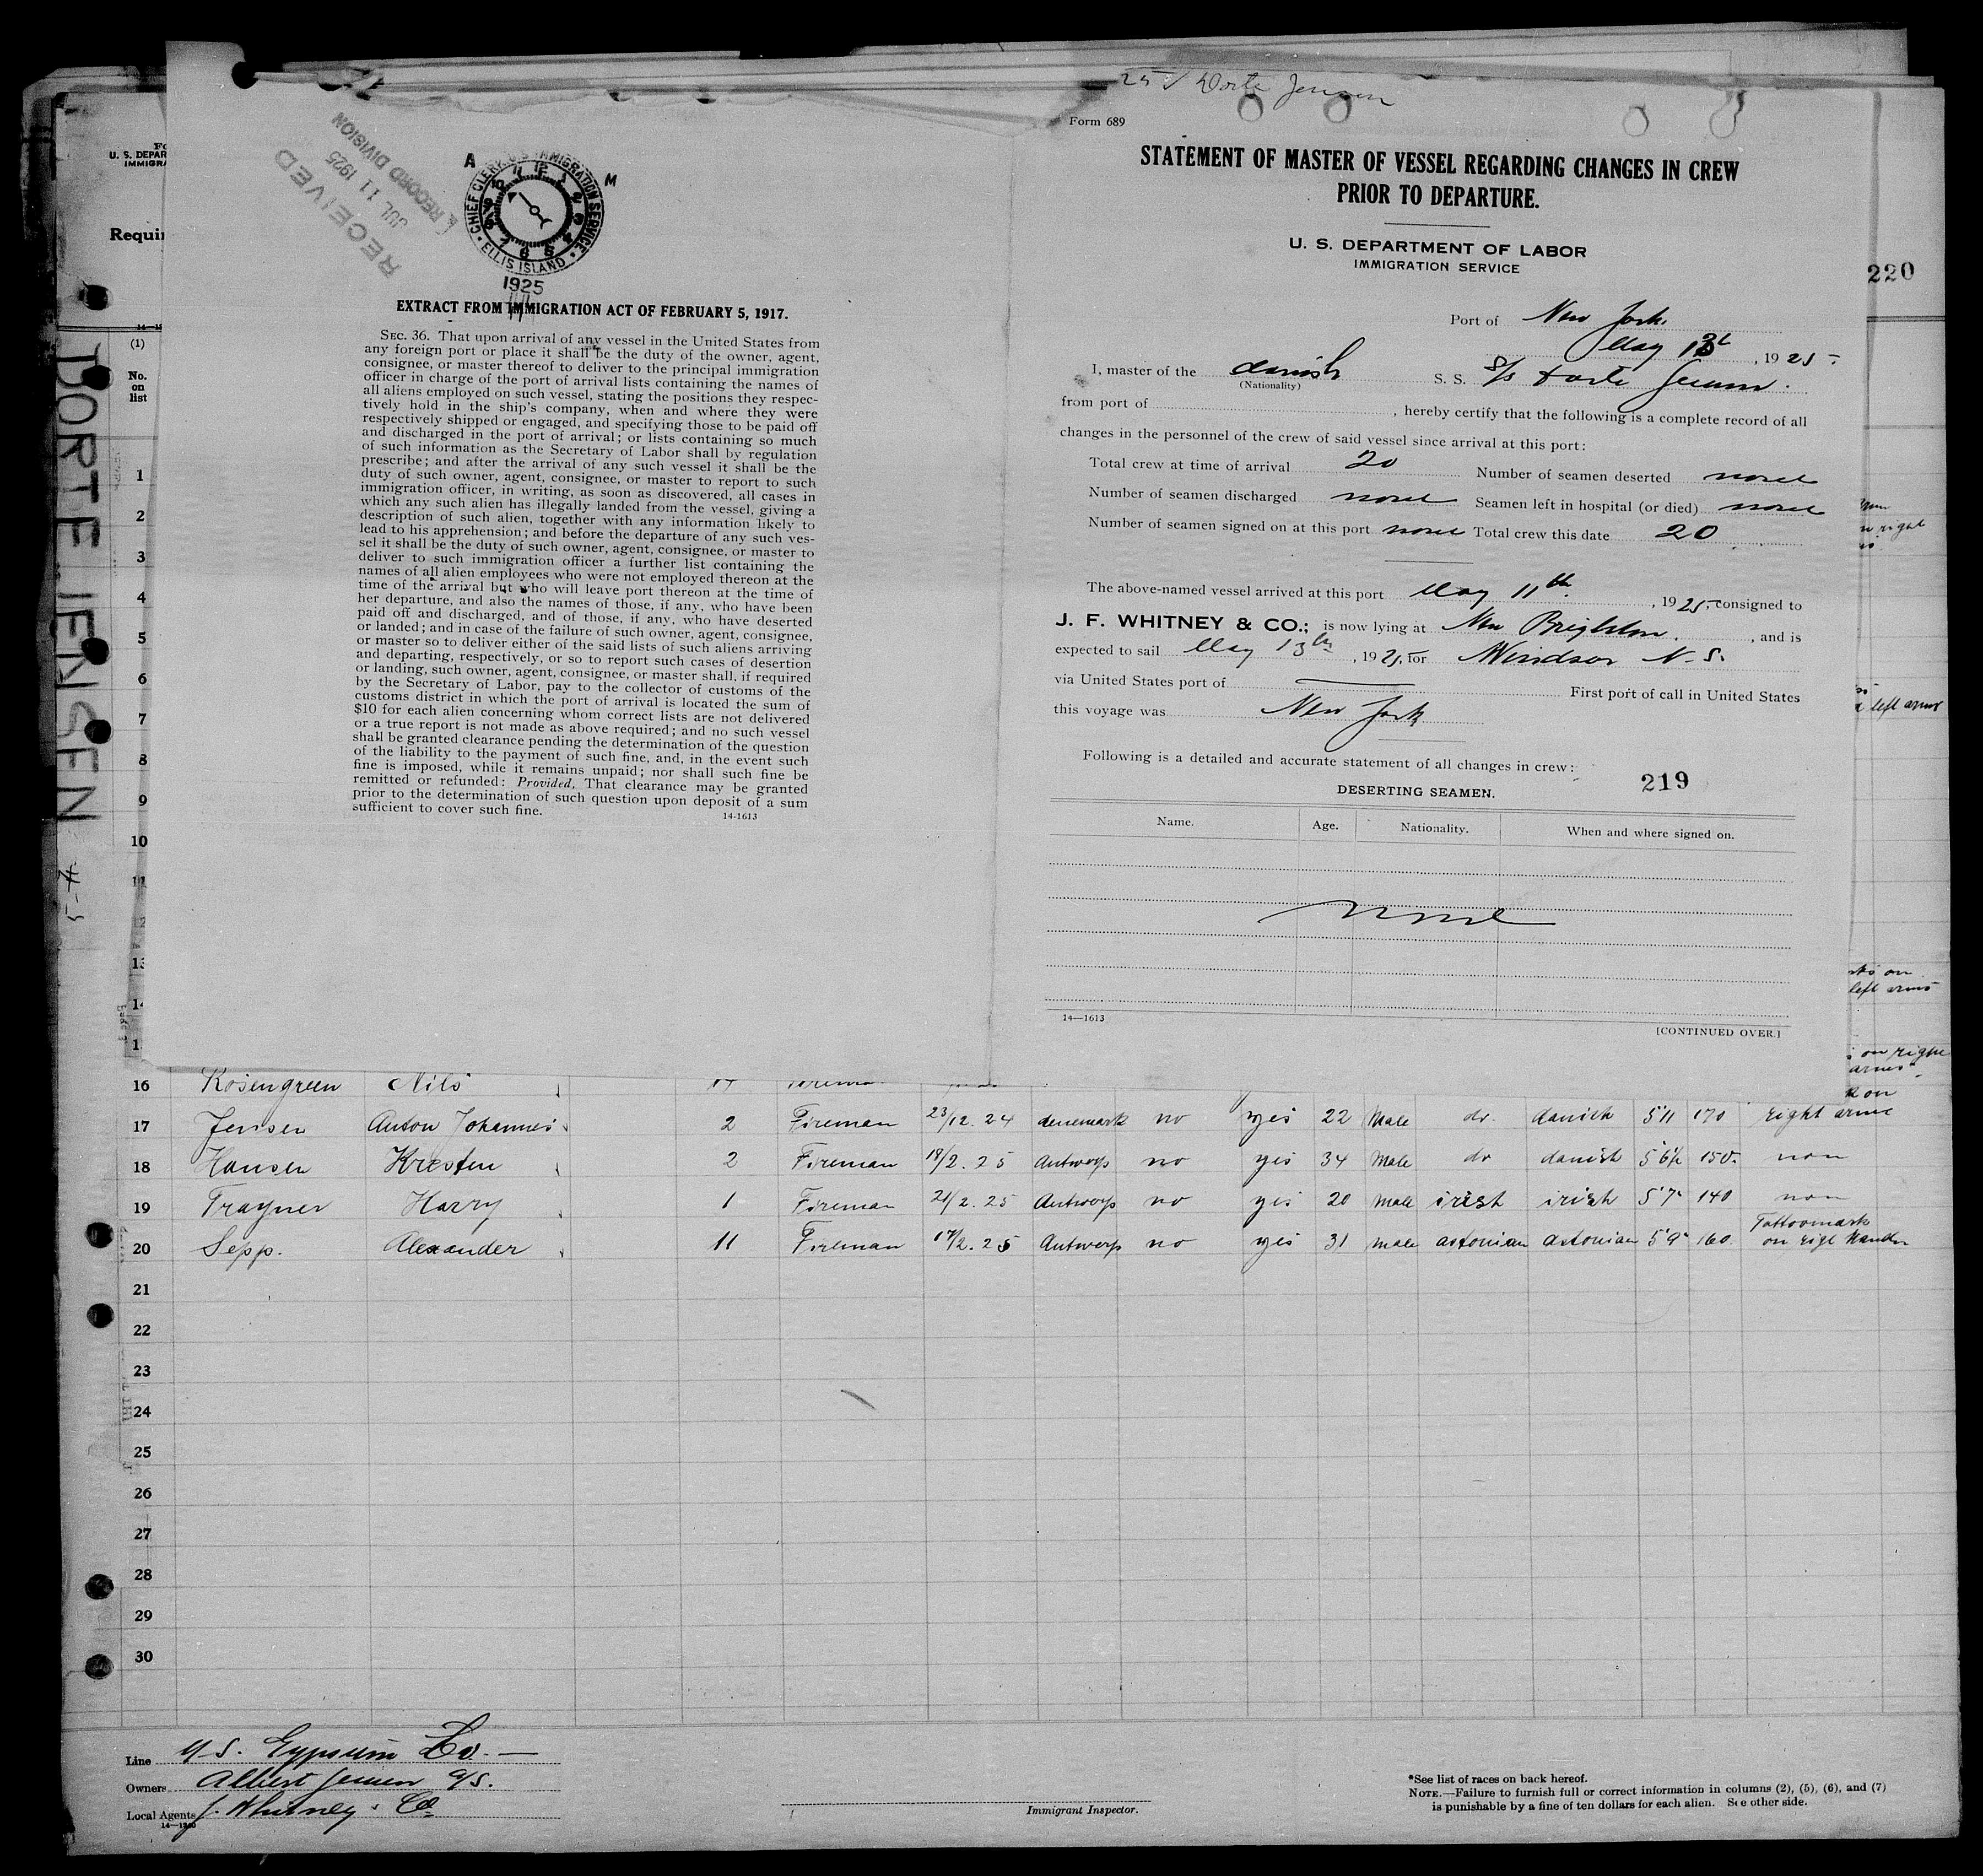 25 / Dorte Jensen
RECEIVED
JUL 11 1925
RECORD DIVISION
A M
CHIEF CLERK U.S. IMMIGRATION SERVICE
ELLIS ISLAND
1925
EXTRACT FROM IMMIGRATION ACT OF FEBRUARY 5, 1917.
SEC. 36. That upon arrival of any vessel in the United States from
any foreign port or place it shall be the duty of the owner, agent,
consignee, or master thereof to deliver to the principal immigration
officer in charge of the port of arrival lists containing the names of
all aliens employed on such vessel, stating the positions they respec-
tively hold in the ship's company, when and where they were
respectively shipped or engaged, and specifying those to be paid off
and discharged in the port of arrival; or lists containing so much
of such information as the Secretary of Labor shall by regulation
prescribe; and after the arrival of any such vessel it shall be the
duty of such owner, agent, consignee, or master to report to such
immigration officer, in writing, as soon as discovered, all cases in
which any such alien has illegally landed from the vessel, giving a
description of such alien, together with any information likely to
lead to his apprehension; and before the departure of any such ves-
sel it shall be the duty of such owner, agent, consignee, or master to
deliver to such immigration officer a further list containing the
names of all alien employees who were not employed thereon at the
time of the arrival but who will leave port thereon at the time of
her departure, and also the names of those, if any, who have been
paid off and discharged, and of those, if any, who have deserted
or landed; and in case of the failure of such owner, agent, consignee,
or master so to deliver either of the said lists of such aliens arriving
and departing, respectively, or so to report such cases of desertion
or landing, such owner, agent, consignee, or master shall, if required
by the Secretary of Labor, pay to the collector of customs of the
customs district in which the port of arrival is located the sum of
$10 for each alien concerning whom correct lists are not delivered
or a true report is not made as above required; and no such vessel
shall be granted clearance pending the determination of the question
of the liability to the payment of such fine, and, in the event such
fine is imposed, while it remains unpaid; nor shall such fine be
remitted or refunded: Provided, That clearance may be granted
prior to the determination of such question upon deposit of a sum
sufficient to cover such fine.
14-1613
Form 689
STATEMENT OF MASTER OF VESSEL REGARDING CHANGES IN CREW
PRIOR TO DEPARTURE.
U. S. DEPARTMENT OF LABOR
IMMIGRATION SERVICE
Port of New York.
May 13th, 1925.
I, master of the danish S. S. S/S Dorte Jensen.
(Nationality)
from port of , hereby certify that the following is a complete record of all
changes in the personnel of the crew of said vessel since arrival at this port:
Total crew at time of arrival 20 Number of seamen deserted none
Number of seamen discharged none Seamen left in hospital (or died) none
Number of seamen signed on at this port none Total crew this date 20
The above-named vessel arrived at this port May 11th, 1925, consigned to
J. F. WHITNEY & CO.; is now lying at New Brighton., and is
expected to sail May 13th, 1925, for Windsor N.S.
via United States port of — First port of call in United States
this voyage was New York
Following is a detailed and accurate statement of all changes in crew:
219
DESERTING SEAMEN.
Name. Age. Nationality. When and where signed on.
none
14—1613
[CONTINUED OVER.]
U. S. DEPAR
IMMIGRA
Requir
220
DORTE JENSEN
(1)
No.
on
list
1
2
n right
3
4
5
6
7 left arms
8
9
10
11
12
13
left arms
14
on right
arms
16 Rosengreen Nils
on
17 Jensen Anton Johannes 2 Fireman 23/12. 24 denemark no yes 22 Male do. danish 5'11 170 right arme
18 Hansen Kresten 2 Fireman 18/2. 25 Antwerp no yes 34 Male do danish 5'6½ 150. non
19 Trayner Harry 1 Fireman 21/2. 25 Antwerp no yes 20 Male irish irish 5'7" 140 non
20 Sepp. Alexander 11 Fireman 17/2. 25 Antwerp no yes 31 male astonian astonian 5'9" 160 Tattoomark
on rigt Handn
21
22
23
24
25
26
27
28
29
30
Line U.S. Gypsum Co. —
Owners Albert Jensen a/s.
Local Agents J. Whitney & Co
14—1240
Immigrant Inspector.
*See list of races on back hereof.
NOTE.—Failure to furnish full or correct information in columns (2), (5), (6), and (7)
is punishable by a fine of ten dollars for each alien. See other side.